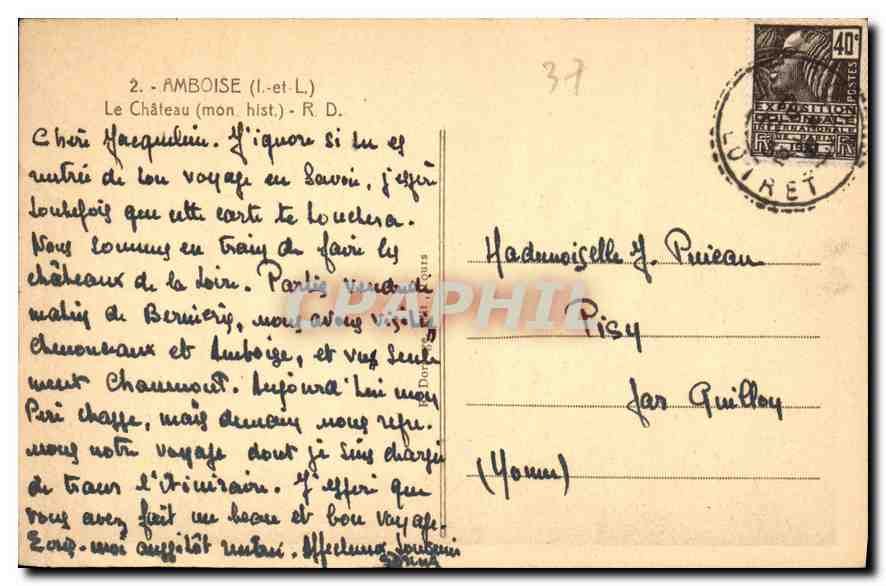 2. - AMBOISE (I.-et-L.)
Le Château (mon. hist.) - R. D.
Chère Jacqueline. J'ignore si tu es
rentrée de ton voyage en Savoie, j'espère
toutefois que cette carte te touchera.
Nous sommes en train de faire les
châteaux de la Loire. Partis vendredi
matin de, nous avons visité
Chenonceaux et Amboise, et vu seule-
ment Chaumont. Aujourd'hui mon
Père chasse, mais demain nous repre-
nons notre voyage dont je suis chargée
de tracer l'itinéraire. J'espère que
vous avez fait un beau et bon voyage.
Ecris-moi aussitôt rentrée. Affectueux souvenir
37
40c
POSTES
EXPOSITION
COLONIALE
INTERNATIONALE
LOIRET
Mademoiselle J.
Pisy
par Guillon
(Yonne)
CPAPHIL
Tours